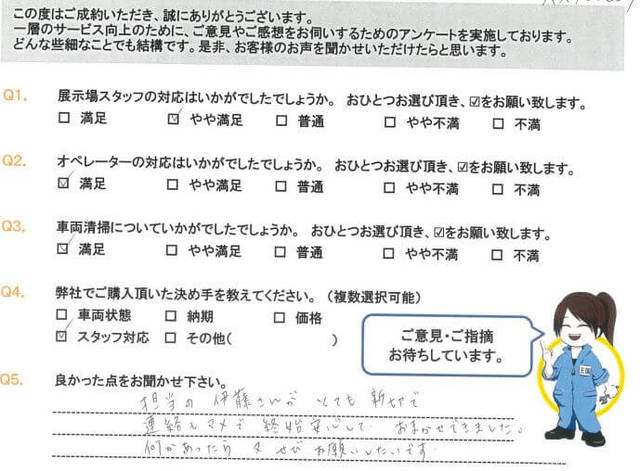 この度はご成約いただき、誠にありがとうございます。
一層のサービス向上のために、ご意見やご感想をお伺いするためのアンケートを実施しております。
どんな些細なことでも結構です。是非、お客様のお声を聞かせいただけたらと思います。
Q1. 展示場スタッフの対応はいかがでしたでしょうか。 おひとつお選び頂き、☑をお願い致します。
□ 満足 ☑ やや満足 □ 普通 □ やや不満 □ 不満
Q2. オペレーターの対応はいかがでしたでしょうか。 おひとつお選び頂き、☑をお願い致します。
☑ 満足 □ やや満足 □ 普通 □ やや不満 □ 不満
Q3. 車両清掃についていかがでしたでしょうか。 おひとつお選び頂き、☑をお願い致します。
☑ 満足 □ やや満足 □ 普通 □ やや不満 □ 不満
Q4. 弊社でご購入頂いた決め手を教えてください。 (複数選択可能)
□ 車両状態 □ 納期 □ 価格
☑ スタッフ対応 □ その他( )
ご意見・ご指摘
お待ちしています。
Q5. 良かった点をお聞かせ下さい。
担当の伊藤さんが とても 親切で
連絡もマメで 終始安心して おまかせできました。
何かあったら 又 ぜひ お願いしたいです